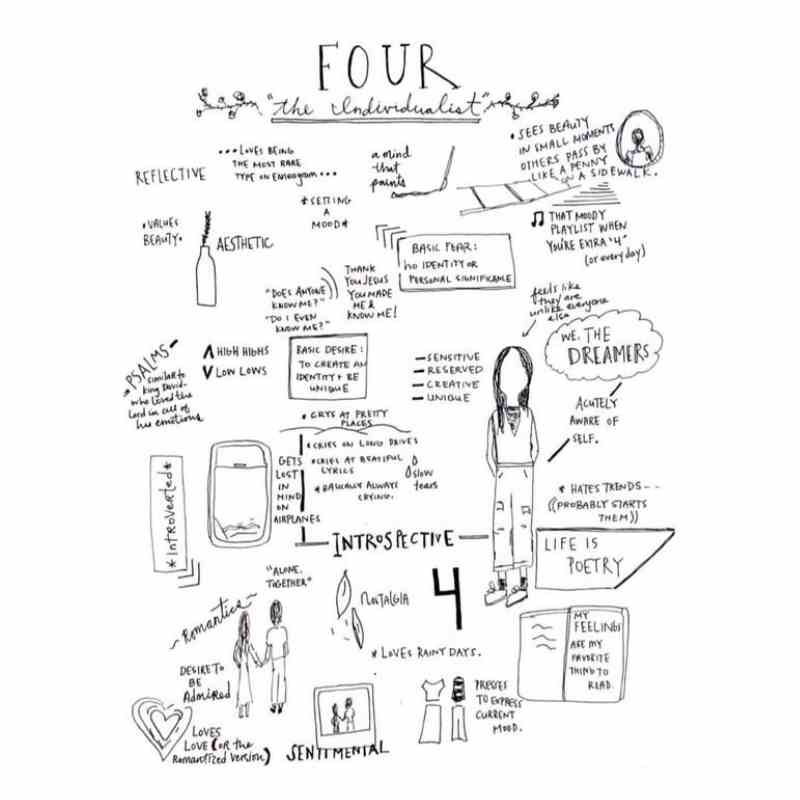 FOUR
"the Individualist"
REFLECTIVE
•••LOVES BEING
THE MOST RARE
TYPE ON Enneagram•••
a mind
that
paints
• SEES BEAUTY
IN SMALL MOMENTS
OTHERS PASS BY
LIKE A PENNY
ON A SIDEWALK.
*SETTING
A
MOOD*
•VALUES
BEAUTY•
AESTHETIC
♫ THAT MOODY
PLAYLIST WHEN
YOU'RE EXTRA "4"
(or everyday)
BASIC FEAR:
NO IDENTITY OR
PERSONAL SIGNIFICANCE
"DOES ANYONE
KNOW ME?"
"DO I EVEN
KNOW ME?"
THANK
YOU JESUS
YOU MADE
ME &
KNOW ME!
feels like
they are
unlike everyone
else
WE, THE
DREAMERS
*PSALMS—
similar to
King David-
who loved the
Lord in all of
his emotions
∧ HIGH HIGHS
∨ LOW LOWS
BASIC DESIRE:
TO CREATE AN
IDENTITY + BE
UNIQUE
—SENSITIVE
—RESERVED
—CREATIVE
—UNIQUE
ACUTELY
AWARE OF
SELF.
• CRYS AT PRETTY
PLACES
•CRIES ON LONG DRIVES
•CRIES AT BEATIFUL
LYRICS
*BASICALLY ALWAYS
CRYING.
slow
tears
GETS
LOST
IN
MIND
ON
AIRPLANES
*INTROVERTED*
* HATES TRENDS--
((PROBABLY STARTS
THEM))
INTROSPECTIVE
LIFE IS
POETRY
"ALONE,
TOGETHER"
~Romantics~
NOSTALGIA
4
* LOVES RAINY DAYS.
MY
FEELINGS
ARE MY
FAVORITE
THING TO
READ.
DESIRE TO
BE
Admired
DRESSES
TO EXPRESS
CURRENT
MOOD.
LOVES
LOVE (OR the
Romantized version)
SENTIMENTAL